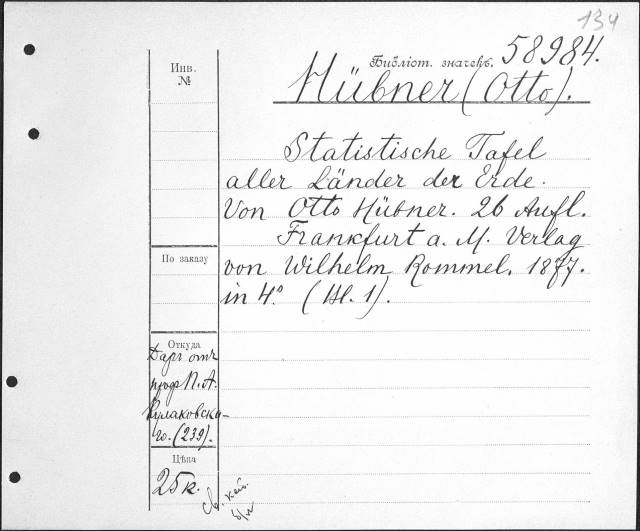 134
Инв.
№
Библіот. значекъ. 58984.
Hübner (Otto).
Statistische Tafel
aller Länder der Erde.
Von Otto Hübner. 26 Aufl.
Frankfurt a. M. Verlag
von Wilhelm Rommel. 1877.
in 4º (Bl. 1).
По заказу
Откуда
Даръ отъ
проф. П. А.
Кулаковска-
го. (239).
Цѣна
25 к.